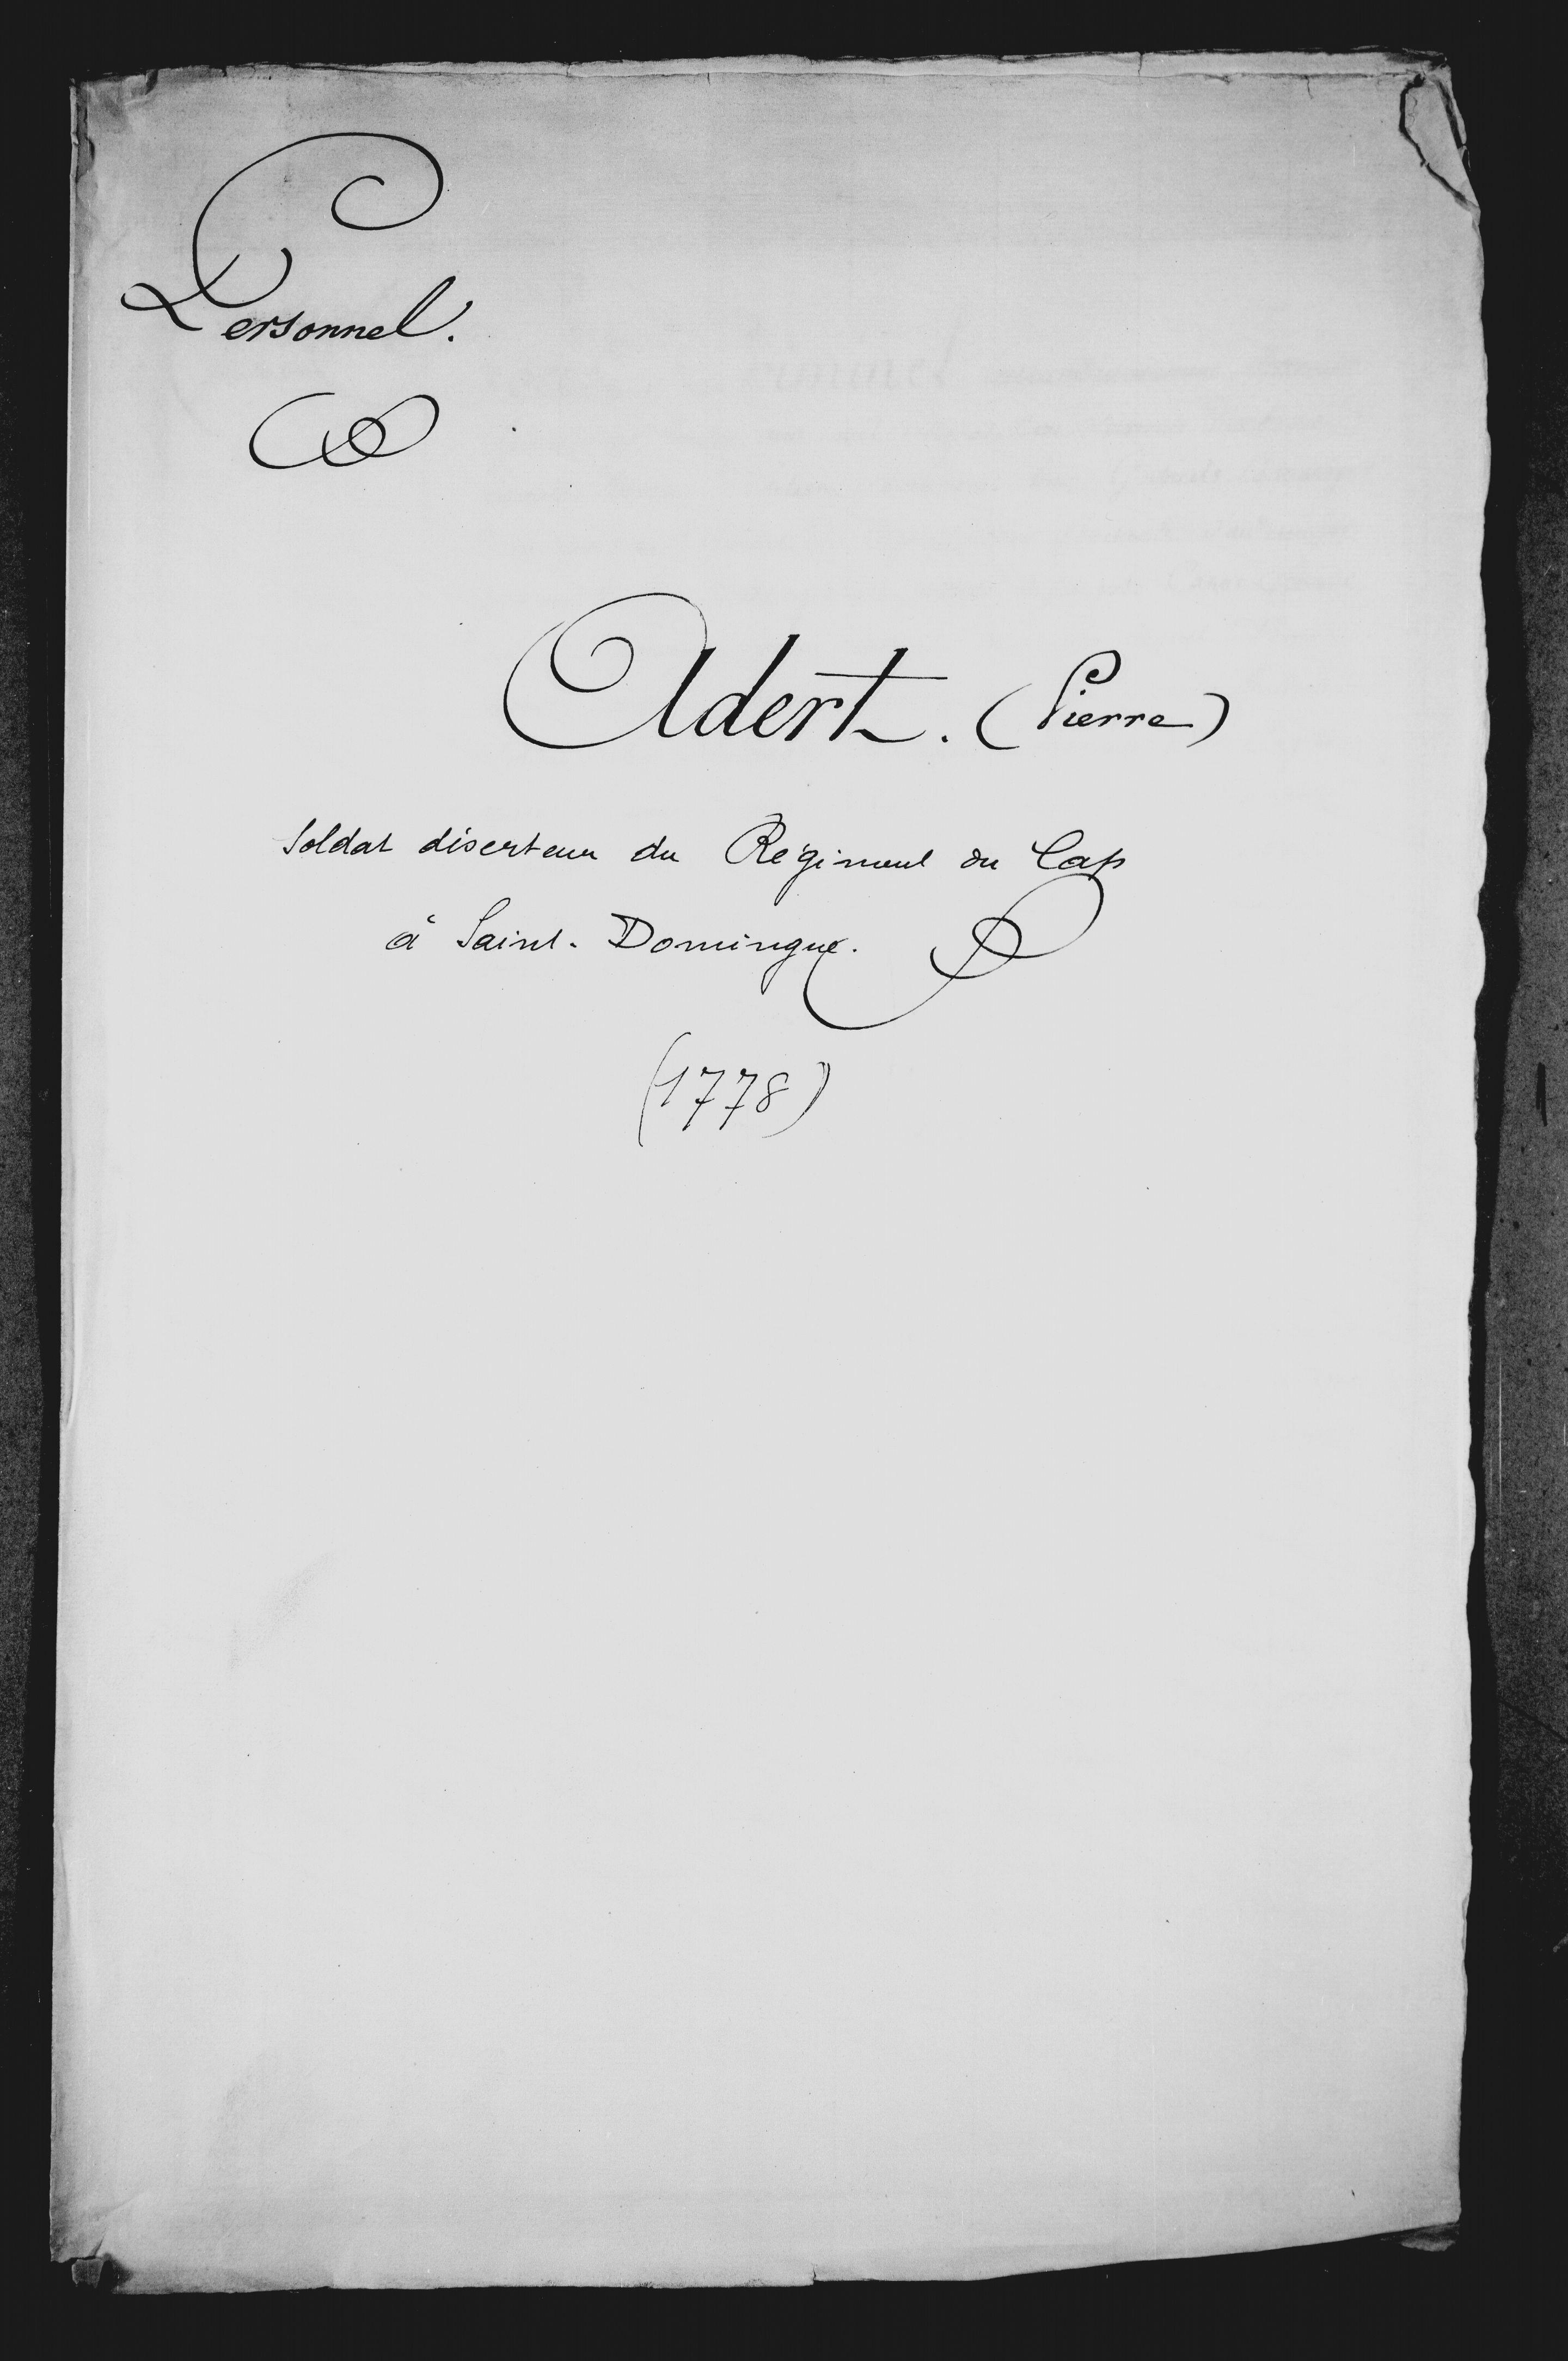 Personnel.
Adert. (Pierre)
Soldat déserteur du Régiment du Cap
à Saint-Domingue.
(1778)